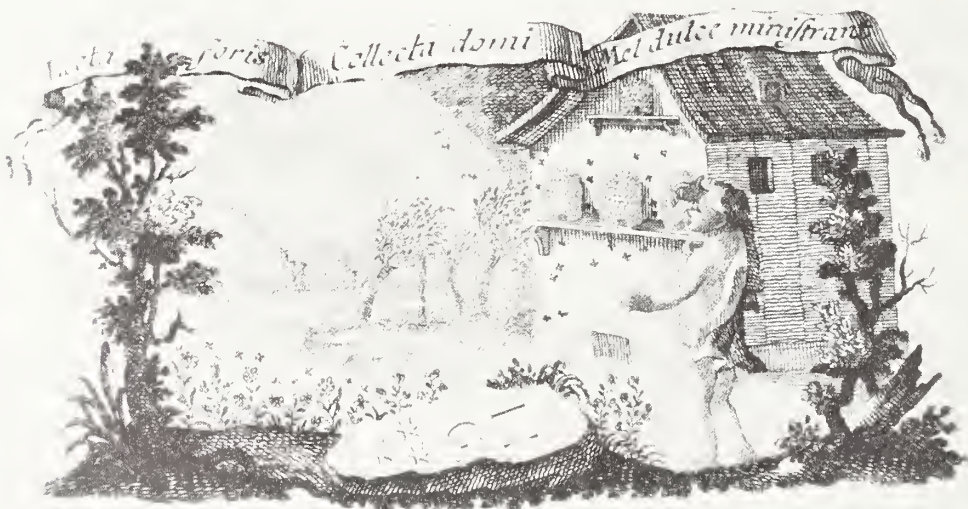 foris Collecta domi Mel dulce miniſtrant